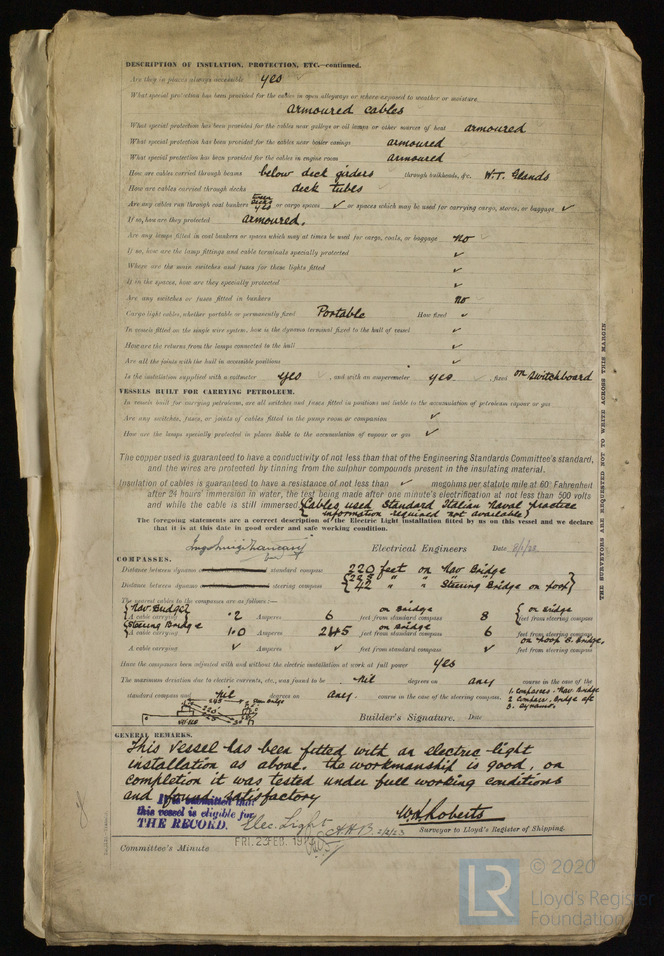 DESCRIPTION OF INSULATION, PROTECTION, ETC.—continued.
Are they in places always accessible yes
What special protection has been provided for the cables in open alleyways or where exposed to weather or moisture
armoured cables
What special protection has been provided for the cables near galleys or oil lamps or other sources of heat armoured
What special protection has been provided for the cables near boiler casings armoured
What special protection has been provided for the cables in engine room armoured
How are cables carried through beams below deck girders through bulkheads, &c. W.T. Glands
How are cables carried through decks deck tubes ✓
Are any cables run through coal bunkers yes or cargo spaces ✓ or spaces which may be used for carrying cargo, stores, or baggage ✓
If so, how are they protected armoured.
Are any lamps fitted in coal bunkers or spaces which may at times be used for cargo, coals, or baggage no ✓
If so, how are the lamp fittings and cable terminals specially protected ✓
Where are the main switches and fuses for these lights fitted ✓
If in the spaces, how are they specially protected ✓
Are any switches or fuses fitted in bunkers no
Cargo light cables, whether portable or permanently fixed Portable How fixed ✓
In vessels fitted on the single wire system, how is the dynamo terminal fixed to the hull of vessel ✓
How are the returns from the lamps connected to the hull ✓
Are all the joints with the hull in accessible positions ✓
Is the installation supplied with a voltmeter yes ✓, and with an amperemeter yes ✓, fixed on switchboard
VESSELS BUILT FOR CARRYING PETROLEUM.
In vessels built for carrying petroleum, are all switches and fuses fitted in positions not liable to the accumulation of petroleum vapour or gas
Are any switches, fuses, or joints of cables fitted in the pump room or companion ✓
How are the lamps specially protected in places liable to the accumulation of vapour or gas ✓
The copper used is guaranteed to have a conductivity of not less than that of the Engineering Standards Committee's standard,
and the wires are protected by tinning from the sulphur compounds present in the insulating material.
Insulation of cables is guaranteed to have a resistance of not less than ✓ megohms per statute mile at 60° Fahrenheit
after 24 hours' immersion in water, the test being made after one minute's electrification at not less than 500 volts
and while the cable is still immersed. {Cables used Standard Italian Naval practice
information required not available}
The foregoing statements are a correct description of the Electric Light installation fitted by us on this vessel and we declare
that it is at this date in good order and safe working condition.
Electrical Engineers Date
COMPASSES.
Distance between dynamo standard compass 220 feet on Nav Bridge
Distance between dynamo steering compass " " Steering Bridge on poop}
The nearest cables to the compasses are as follows:—
{Nav Bridge} on Bridge {on Bridge
A cable carrying ·2 Amperes 6 feet from standard compass 8 feet from steering compass
{Steering Bridge on Bridge
A cable carrying 1·0 Amperes 245 feet from standard compass 6 feet from steering compass
on poop S. Bridge
A cable carrying ✓ Amperes ✓ feet from standard compass ✓ feet from steering compass
Have the compasses been adjusted with and without the electric installation at work at full power yes
The maximum deviation due to electric currents, etc., was found to be Nil degrees on any course in the case of the
standard compass and Nil degrees on any course in the case of the steering compass.
1. Compasses. Nav Bridge
2 Compass. Bridge aft
3. dynamo.
Builder's Signature. Date
GENERAL REMARKS.
This vessel has been fitted with an electric light
installation as above. the workmanship is good, on
completion it was tested under full working conditions
and found satisfactory
It is submitted that
this vessel is eligible for
THE RECORD. Elec. Light
W.H. Roberts
Surveyor to Lloyd's Register of Shipping.
Committee's Minute
THE SURVEYORS ARE REQUESTED NOT TO WRITE ACROSS THIS MARGIN
LR
© 2020
Lloyd's Register
Foundation